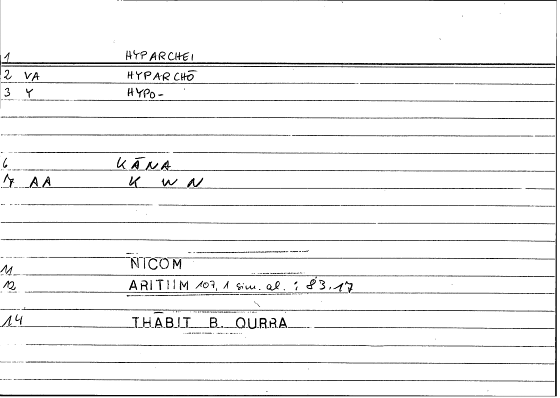 1 HYPARCHEI
2 VA HYPARCHŌ
3 Y HYPO-
6 KĀNA
7 AA K W N
11 NICOM
12 ARITIIM 107,1 sim. al. : 83.17
14 THĀBIT B. QURRA